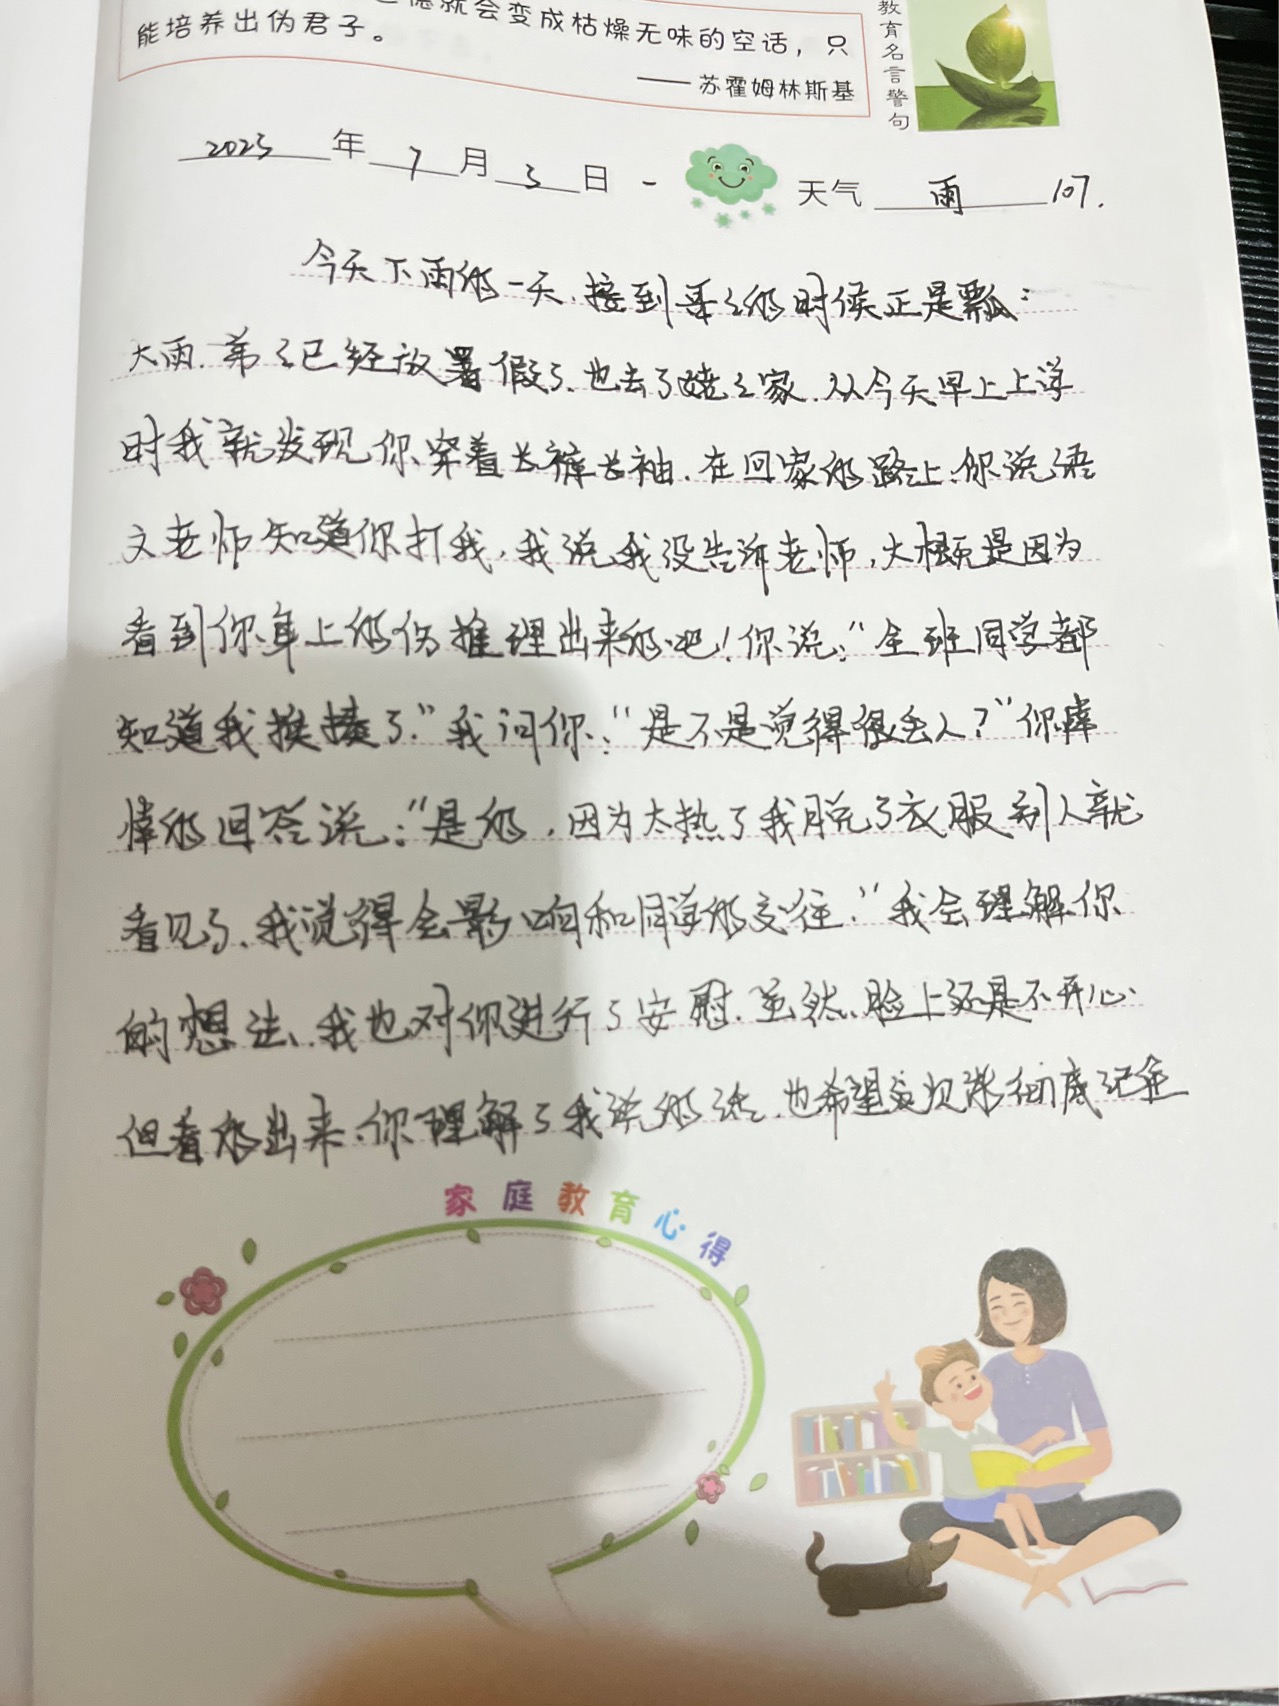 德就会变成枯燥无味的空话，只
能培养出伪君子。
——苏霍姆林斯基
教育名言警句
2023年7月3日 - 天气 雨 107.
今天下雨的一天,接到哥々的时候正是瓢:
大雨.弟々已经放暑假了.也去了姥々家.从今天早上上学
时我就发现你穿着长裤长袖.在回家的路上,你说语
文老师知道你打我,我说我没告诉老师,大概是因为
看到你身上的伤推理出来的吧!你说:“全班同学都
知道我挨揍了.”我问你:“是不是觉得很丢人?”你悻
悻的回答说:“是的,因为太热了我脱了衣服别人就
看见了,我觉得会影响和同学的交往.”我会理解你
的想法,我也对你进行了安慰.虽然脸上还是不开心
但看的出来,你理解了我说的话.也希望这次彻底记住
家庭教育心得